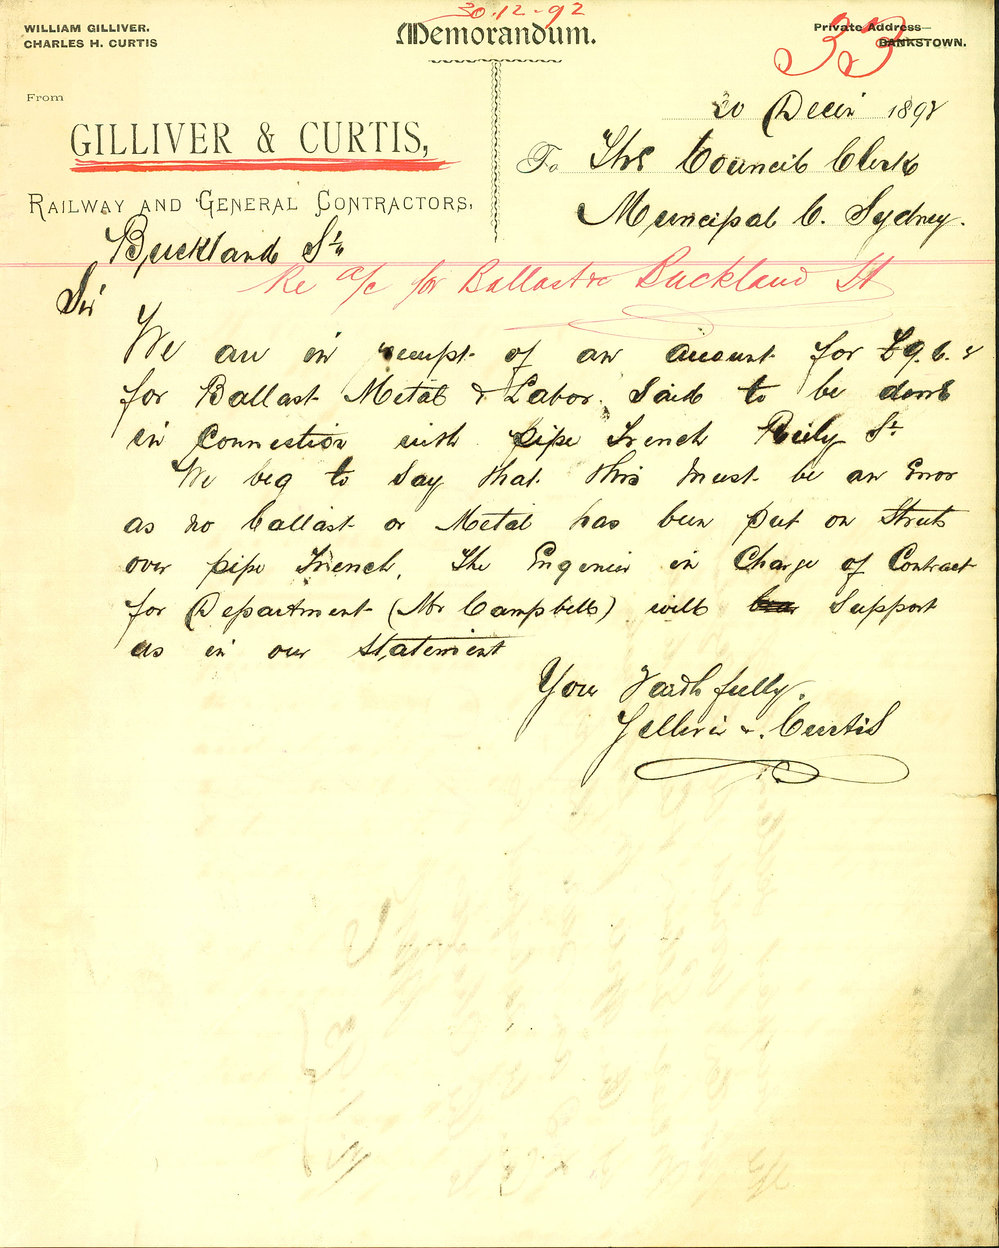 30.12-92
WILLIAM GILLIVER.
CHARLES H. CURTIS
Memorandum.
Private Address
BANKSTOWN.
33
From
GILLIVER & CURTIS,
RAILWAY AND GENERAL CONTRACTORS,
Buckland St,
20 Decr 1892
To The Council Clerk
Muncipal C. Sydney.
Re a/c for Ballast &c Buckland St
Sir
We are in receipt of an amount for £9.6.
for Ballast Metal & Labor Said to be done
in Connection with pipe trench Reily St
We beg to Say that this must be an Error
as no ballast or Metal has been put on Streets
over pipe Trench, The Engenier in Charge of Contract
for Department (Mr Campbell) will Support
us in our Statement
Your Faithfully,
Gilliver & Curtis